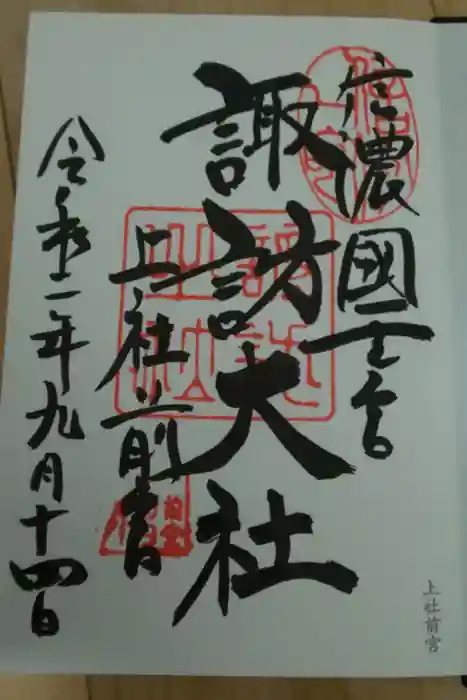 信濃國一宮
諏訪大社
上社前宮
令和二年九月十四日
上社前宮